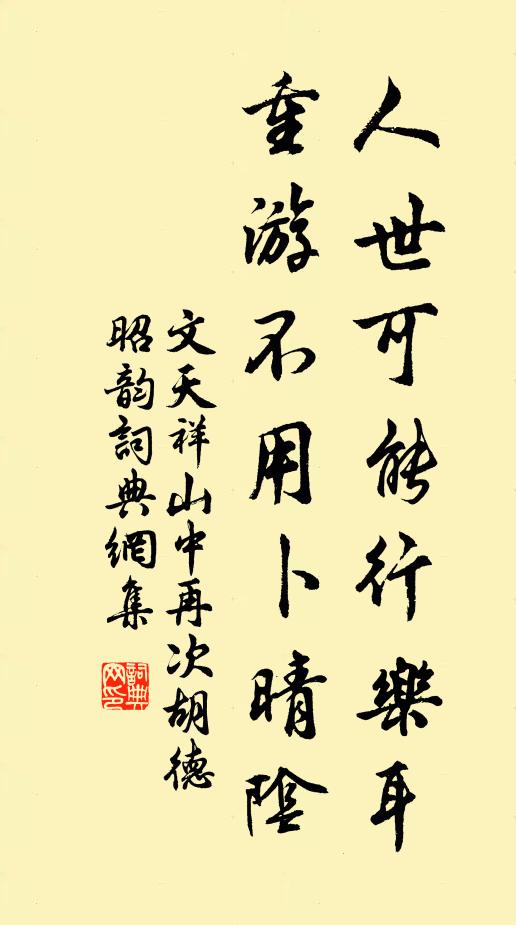 人世可能行樂耳
重游不用卜晴陰
文天祥山中再次胡德
昭韵詞典網集
詞典网印